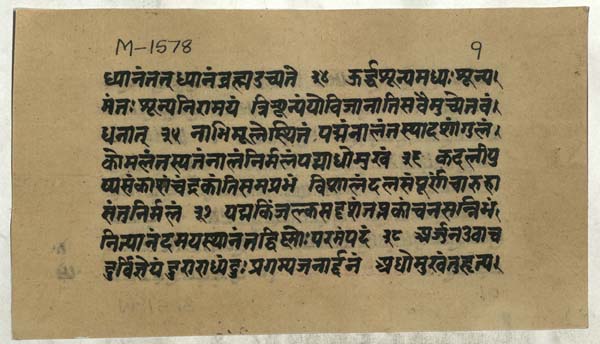 M-1578
१
ध्यानंतत् ध्यानंब्रह्मउच्यते ३४ ऊर्द्धशून्यमध्यःशून्य।
मंतःशून्यनिरामयं त्रिशून्यंयोविजानातिसवैमुच्येतबं।
धनात् ३५ नाभिमूलेस्थितं पद्मंनालंतस्यादशांगुलं।
कोमलंतस्यतंनालंनिर्मलंपद्माधोमुखं ३६ कदलीपु
ष्पसंकासंचंद्रकांतिसमप्रभं विशालंदलसंपूर्णंचारुहा
संतनिर्मलं ३७ पद्मकिंजल्कसदृशंतप्तकांचनसन्निभं।
नित्यानंदमयस्यानंतद्विष्णोःपरमंपदं ३८ अर्जुनउवाच
दुर्विज्ञेयंदुराराध्यंदुःप्रगम्यजनार्द्दनं अधोमुखंतुहृत्प।